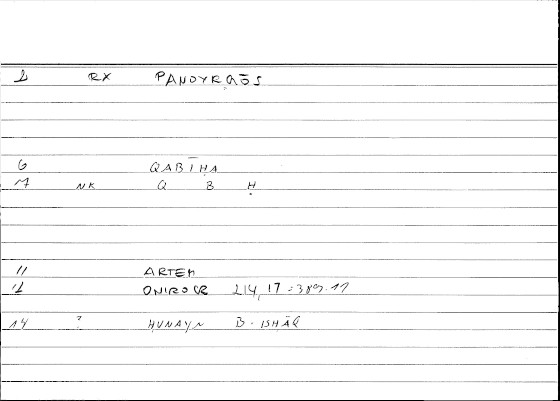 1 RX PANOYRGOS
6 QABĪḤA
7 NK Q B Ḥ
11 ARTEM
12 ONIROCR 214,17 = 389.11
14 ? ḤUNAYN B. ISḤĀQ